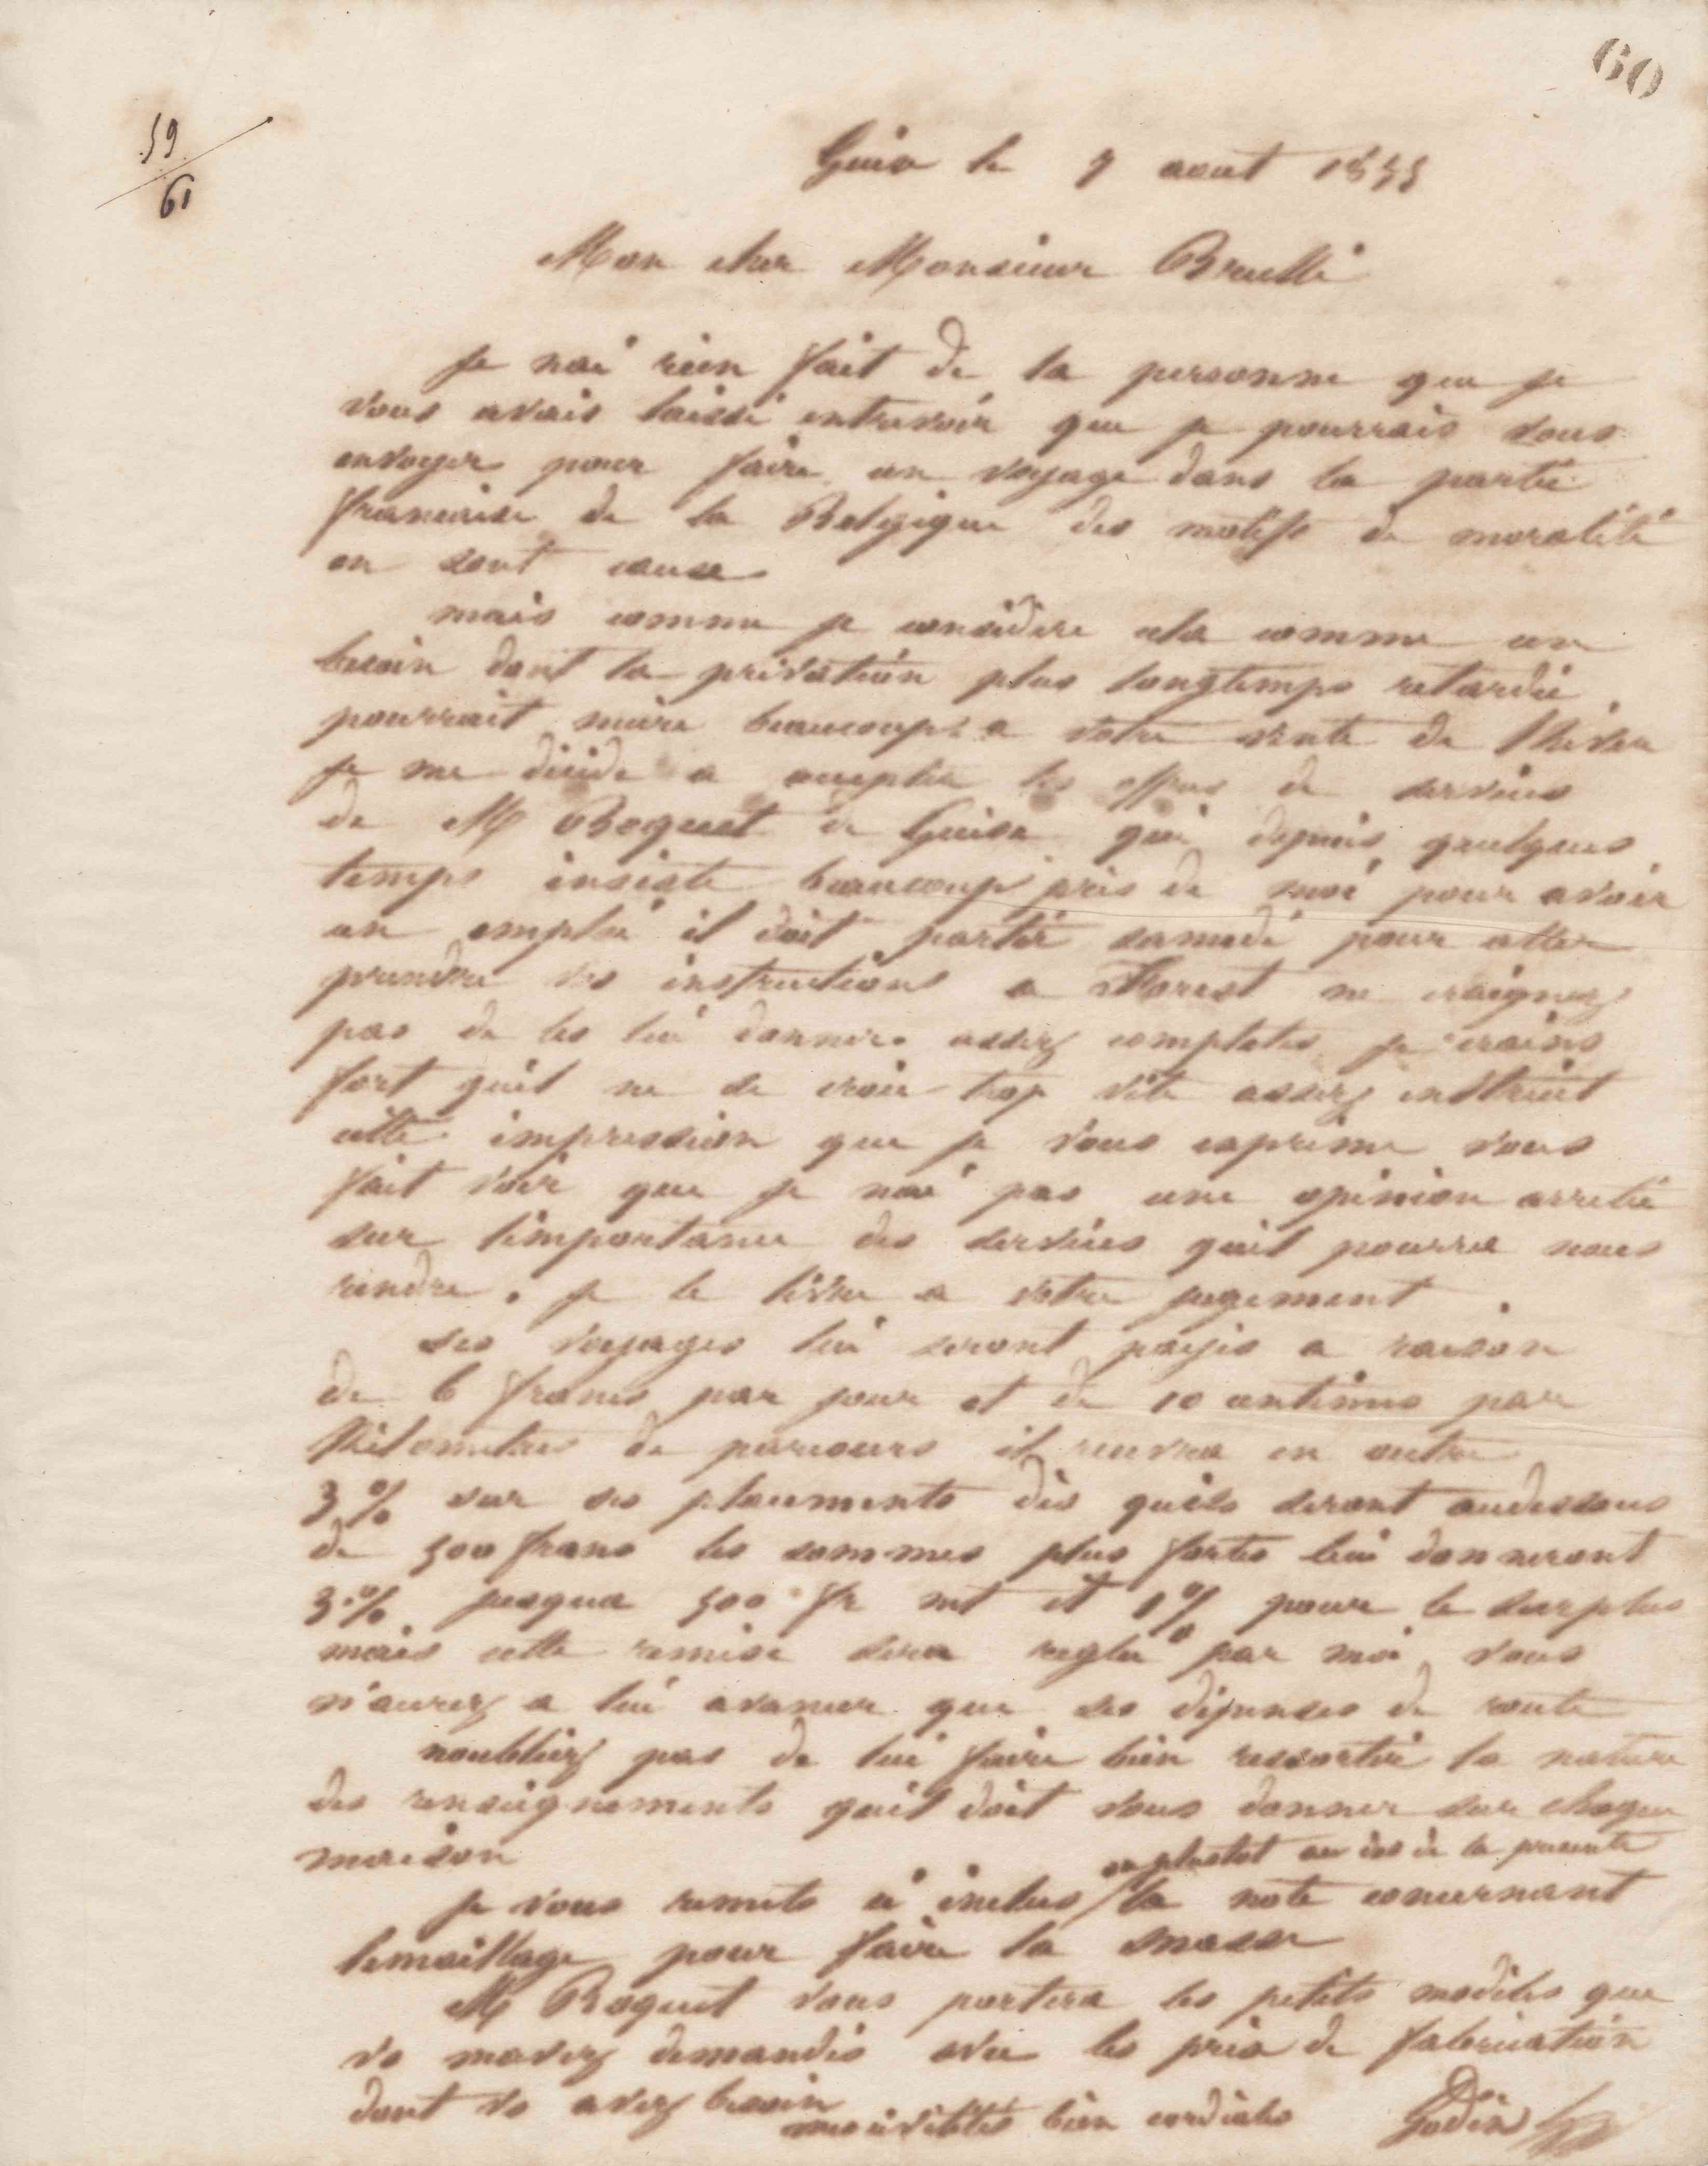 60
59
61
Guise le 7 aout 1855
Mon cher Monsieur Brullé
Je nai rien fait de la personne que je
vous avais laissé entrevoir que je pourrais vous
envoyer pour faire un voyage dans la partie
francaise de la Belgique des motifs de moralité
en sont cause
mais comme je considère cela comme un
besoin dont la privation plus longtemps retardée
pourrait nuire beaucoup a votre vente de lhiver
je me décide a accepter les offres de services
de M Boquet de Guise qui depuis quelques
temps insiste beaucoup près de moi pour avoir
un emploi il doit partir samedi pour aller
prendre vos instructions a Forest ne craignez
pas de les lui donner assez completes je crains
fort quil ne se croie trop vite assez instruit
cette impression que je vous exprime vous
fait voir que je nai pas une opinion arretée
sur limportance des services quil pourra nous
rendre. je le livre a votre jugement
ses voyages lui seront payés a raison
de 6 francs par jour et de 10 centimes par
kilometres de parcours il recevra en outre
3 % sur ses placements dès quils seront audessous
de 500 francs les sommes plus fortes lui donneront
3 % jusqua 500 fr net et 1 % pour le surplus
mais cette remise sera reglée par moi vous
n'aurez a lui avancer que ses dépenses de route
noubliez pas de lui faire bien ressortir la nature
des renseignements quil doit vous donner sur chaque
maison
ou plustot au dos de la presente
je vous remets ci inclus la note concernant
lemaillage pour faire la masse
M Boquet vous portera les petits modèles que
vs mavez demandés avec les prix de fabrication
dont vs avez besoin
mes civilités bien cordiales Godin